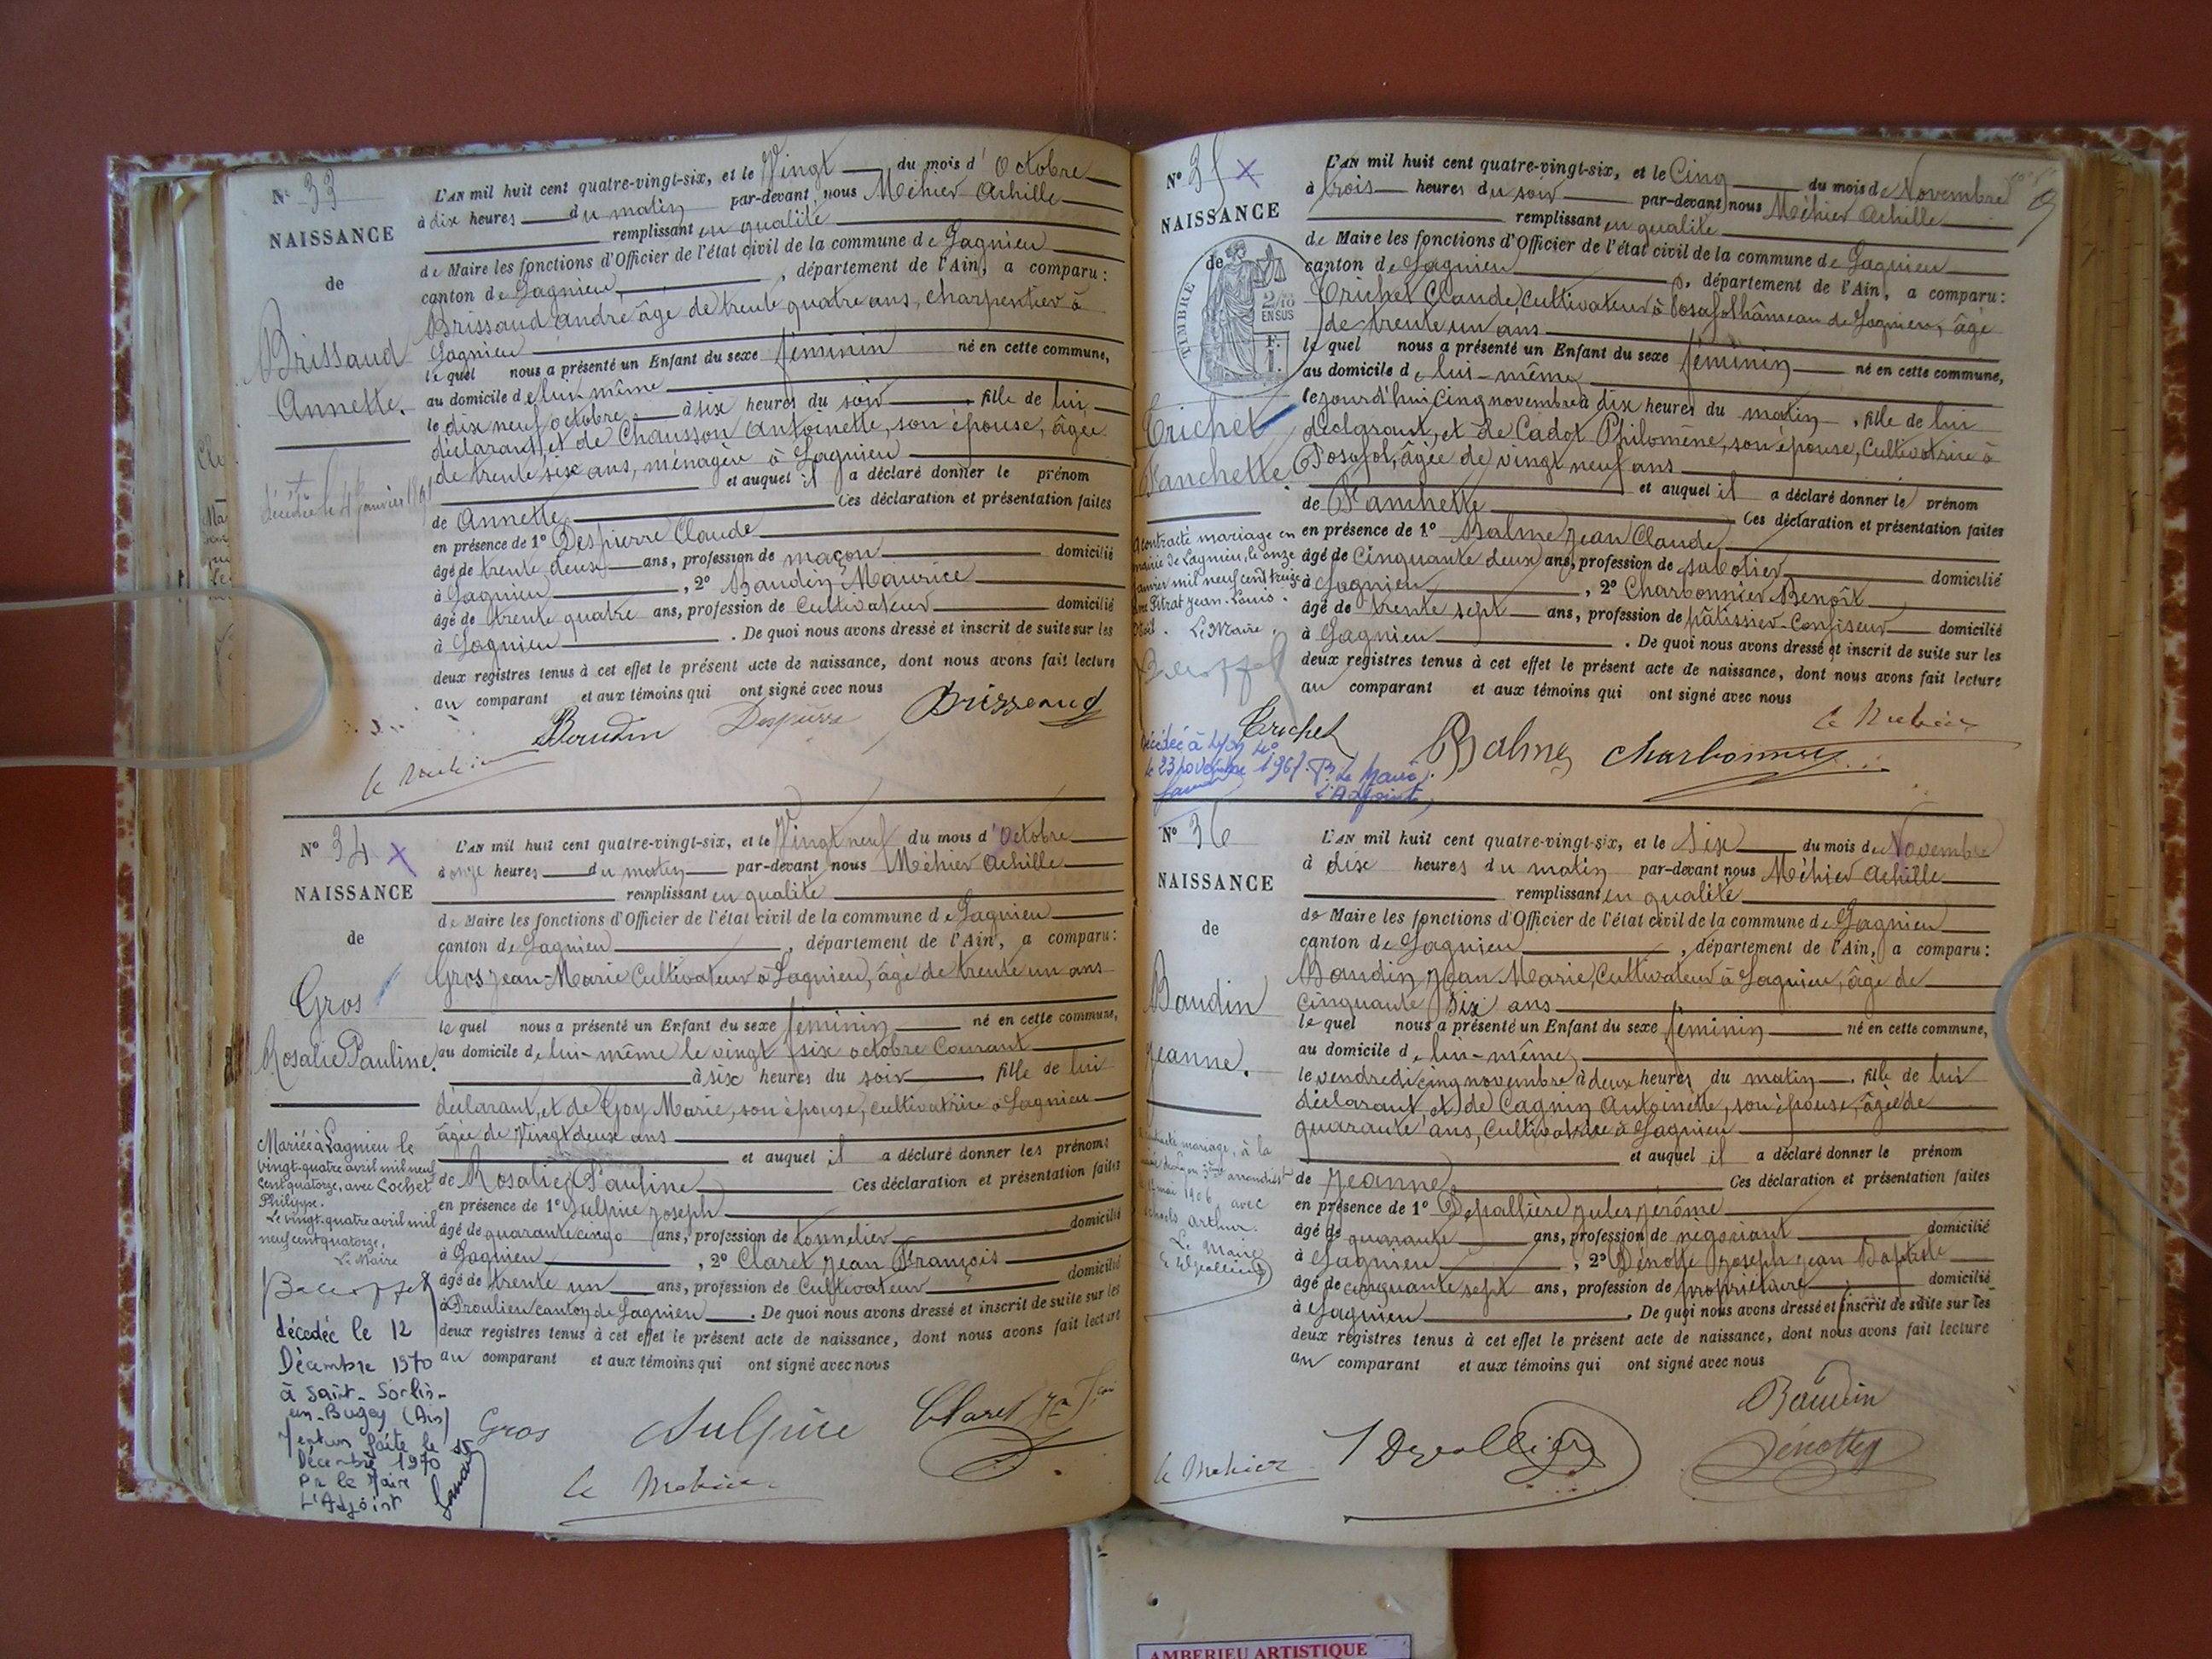 N° 33
NAISSANCE
de
Brissaud
Annette.
décédée le 4 janvier
L'AN mil huit cent quatre-vingt-six, et le Vingt du mois d' Octobre
à dix heures du matin par-devant nous Méhier Achille
remplissant en qualité
de Maire les fonctions d'Officier de l'état civil de la commune de Lagnieu
canton de Lagnieu, département de l'Ain, a comparu:
Brissaud André âgé de trente quatre ans, charpentier à
Lagnieu
le quel nous a présenté un Enfant du sexe féminin né en cette commune,
au domicile de lui même
le dix neuf octobre à six heures du soir, fille de lui
déclarant, et de Chausson Antoinette, son épouse, âgée
de trente six ans, ménagère à Lagnieu
et auquel il a déclaré donner le prénom
de Annette Ces déclaration et présentation faites
en présence de 1° Despierre Claude
âgé de trente deux ans, profession de maçon domicilié
à Lagnieu, 2° Baudin Maurice
âgé de trente quatre ans, profession de Cultivateur domicilié
à Lagnieu. De quoi nous avons dressé et inscrit de suite sur les
deux registres tenus à cet effet le présent acte de naissance, dont nous avons fait lecture
au comparant et aux témoins qui ont signé avec nous
Baudin Despierre Brissaud
N° 34 X
NAISSANCE
de
Gros
Rosalie Pauline.
Mariée à Lagnieu le
vingt-quatre avril mil neuf
cent quatorze, avec Cochet
Philippe.
Le vingt-quatre avril mil
neuf cent quatorze,
Le Maire
décédée le 12
Décembre 1970
à Saint-Sorlin-
en-Bugey (Ain)
Mention faite le 15
Décembre 1970
Pr le Maire
L'Adjoint
L'AN mil huit cent quatre-vingt-six, et le Vingt neuf du mois d'Octobre
à onze heures du matin par-devant nous Méhier Achille
remplissant en qualité
de Maire les fonctions d'Officier de l'état civil de la commune de Lagnieu
canton de Lagnieu, département de l'Ain, a comparu:
Gros Jean-Marie Cultivateur à Lagnieu, âgé de trente un ans
le quel nous a présenté un Enfant du sexe féminin né en cette commune,
au domicile de lui-même le vingt six octobre Courant
à six heures du soir, fille de lui
déclarant, et de Goy Marie, son épouse, cultivatrice à Lagnieu
âgée de Vingt deux ans
et auquel il a déclaré donner les prénoms
de Rosalie Pauline Ces déclaration et présentation faites
en présence de 1° Sulpice Joseph
âgé de quarante cinq ans, profession de tonnelier domicilié
à Lagnieu, 2° Claret Jean François
âgé de trente un ans, profession de Cultivateur domicilié
à Proulieu canton de Lagnieu. De quoi nous avons dressé et inscrit de suite sur les
deux registres tenus à cet effet le présent acte de naissance, dont nous avons fait lecture
au comparant et aux témoins qui ont signé avec nous
Gros Sulpice Claret
N° 35 X
NAISSANCE
de
TIMBRE
2/10
EN SUS
Trichet
Fanchette
A contracté mariage en
mairie de Lagnieu, le onze
janvier mil neuf cent treize
avec Pitrat Jean-Louis.
Le Maire,
décédée à Lyon 4e
le 23 novembre 1967. Pr le Maire.
L'Adjoint,
L'AN mil huit cent quatre-vingt-six, et le Cinq du mois de Novembre
à trois heures du soir par-devant nous Méhier Achille
remplissant en qualité
de Maire les fonctions d'Officier de l'état civil de la commune de Lagnieu
canton de Lagnieu, département de l'Ain, a comparu:
Trichet Claude Cultivateur à Posafol hameau de Lagnieu, âgé
de trente un ans
le quel nous a présenté un Enfant du sexe féminin né en cette commune,
au domicile de lui-même
le jourd'hui cinq novembre à dix heures du matin, fille de lui
déclarant, et de Cadot Philomène, son épouse, Cultivatrice à
Posafol, âgée de vingt neuf ans
et auquel il a déclaré donner le prénom
de Fanchette Ces déclaration et présentation faites
en présence de 1° Balme Jean Claude
âgé de Cinquante deux ans, profession de sabotier domicilié
à Lagnieu, 2° Charbonnier Benoît
âgé de trente sept ans, profession de pâtissier-Confiseur domicilié
à Lagnieu. De quoi nous avons dressé et inscrit de suite sur les
deux registres tenus à cet effet le présent acte de naissance, dont nous avons fait lecture
au comparant et aux témoins qui ont signé avec nous
Trichet Balme Charbonnier
N° 36
NAISSANCE
de
Baudin
Jeanne.
mariage, à la
1906 avec
Arthur.
Le Maire
L'AN mil huit cent quatre-vingt-six, et le Six du mois de Novembre
à dix heures du matin par-devant nous Méhier Achille
remplissant en qualité
de Maire les fonctions d'Officier de l'état civil de la commune de Lagnieu
canton de Lagnieu, département de l'Ain, a comparu:
Baudin Jean Marie, Cultivateur à Lagnieu, âgé de
cinquante six ans
le quel nous a présenté un Enfant du sexe féminin né en cette commune,
au domicile de lui-même
le vendredi cinq novembre à deux heures du matin, fille de lui
déclarant, et de Cagnin Antoinette, son épouse, âgée de
quarante ans, Cultivatrice à Lagnieu
et auquel il a déclaré donner le prénom
de Jeanne Ces déclaration et présentation faites
en présence de 1° Depallière Jules Jérôme
âgé de quarante ans, profession de négociant domicilié
à Lagnieu, 2° Dénotte Joseph Jean Baptiste
âgé de cinquante sept ans, profession de propriétaire domicilié
à Lagnieu. De quoi nous avons dressé et inscrit de suite sur les
deux registres tenus à cet effet le présent acte de naissance, dont nous avons fait lecture
au comparant et aux témoins qui ont signé avec nous
Baudin
AMBERIEU ARTISTIQUE